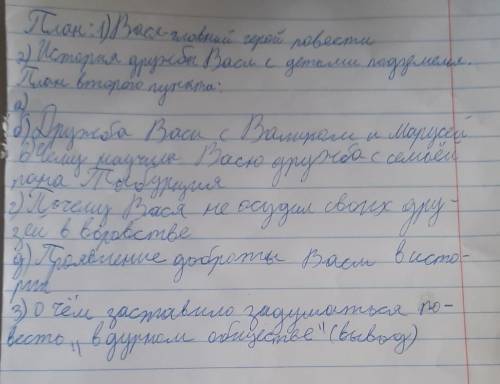 План: 1) Вася-главный герой повести
2) История дружбы Васи с детьми подземелья.
План второго пункта:
а)
б) Дружба Васи с Валиком и Марусей
в) Чему научила Васю дружба с семьёй
пана Тыбурция
г) Почему Вася не осудил своих дру-
зей в воровстве
д) Проявление доброты Васи в исто-
рии
3) О чём заставило задуматься по-
весть „в дурном обществе" (вывод)